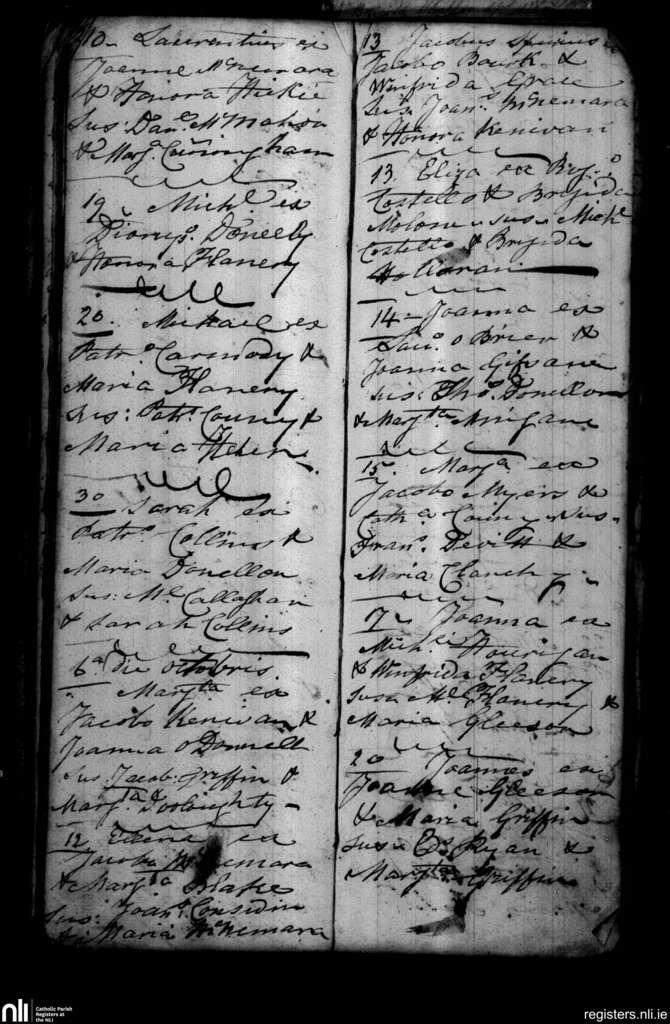 10 Laurentius ex
Joanne McNemara
& Honora Hickie
Sus: Danl McMahon
& Marga Cuningham
19 Michl ex
Dionyso Doneely
& Honora Flanery
20 Mikael ex
Patro Carmody &
Maria Flanery
Sus: Patt Couny &
Maria
30 Sarah ex
Patro Collins &
Maria Donellon
Sus: Ml Callaghan
& Sarah Collins
6a Die Octobris
Margta ex
Jacobo Kenivan &
Joanna O Donnell
Sus Jacob: Griffin &
Margta Dooloughty
12 Elena ex
Jacobo McNemara
& Margta Blake
Sus: Joans Considin
& Maria McNemara
13 Jacobus Spurius ex
Jacobo Bourk &
Winifrida Grace
Sus Joans McNemara
& Honora Kenivan
13. Eliza ex
Costello & Brigida
Molony Sus Michl
Costello & Brigida
Halloran
14 Joanna ex
O Brien &
Joanna
Sus: Thos Donellon
& Margta
15. Marga ex
Jacobo Myers &
Catha Couny Sus
Frans Devitt &
Maria Clanchy
17 Joanna ex
Michl Hourigan
& Winifrida Flanery
Sus Ml Flanery &
Maria Gleeson
20 Joannes ex
Joanne Gleeson
& Maria Griffin
Sus Ryan &
Margta Griffin
nli Catholic Parish
Registers at
the NLI
registers.nli.ie